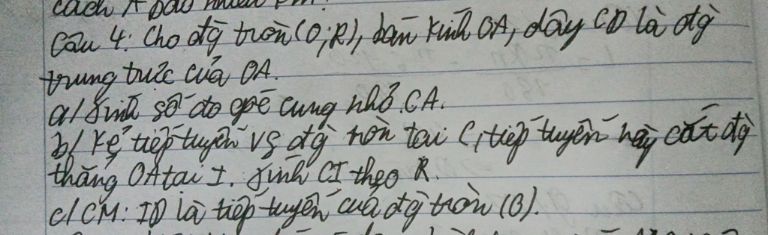 Câu 4: Cho đg̀ tròn (O;R), bán kính OA, dây CD là đg̀
trung trực của OA.
a/ Tính số đo cung nhỏ CA.
b/ Kẻ tiếp tuyến vs đg̀ tròn tại C, tiếp tuyến này cắt đg̀
thẳng OA tại I. Tính CI theo R.
c/ CM: ID là tiếp tuyến của đg̀ tròn (O).